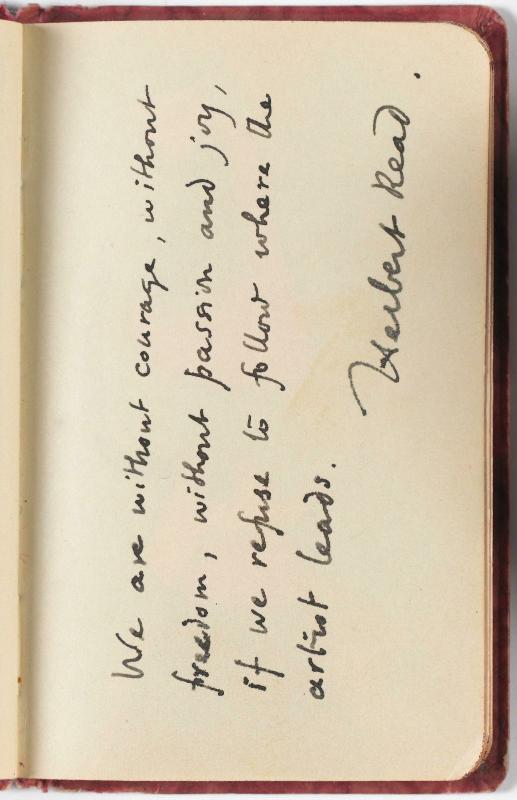 We are without courage, without
freedom, without passion and joy,
if we refuse to follow where the
artist leads.
Herbert Read.